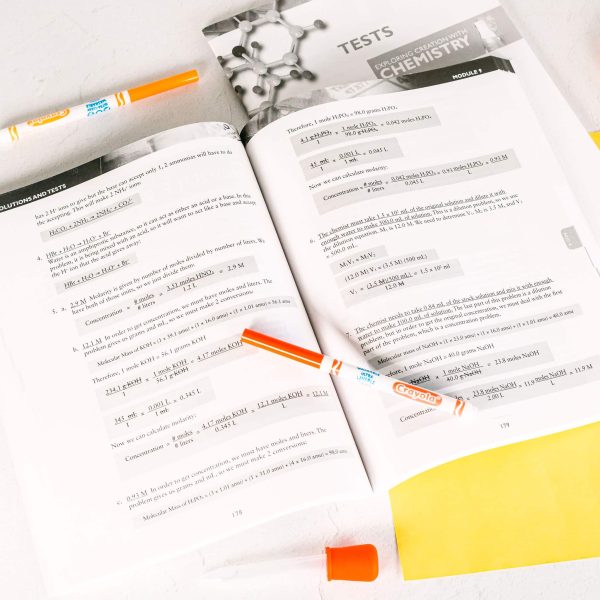 TESTS
EXPLORING CREATION WITH
CHEMISTRY
MODULE 9
SOLUTIONS AND TESTS
has 2 H⁺ ions to give but the base can accept only 1, 2 ammonias will have to do
the accepting. This will make 2 NH₄⁺ ions:
H₂CO₃ + 2NH₃ → 2NH₄⁺ + CO₃²⁻
4. HBr + H₂O → H₃O⁺ + Br⁻
Water is an amphiprotic substance, so it can act as either an acid or a base. In this
problem, it is being mixed with an acid, so it will want to act like a base and accept
the H⁺ ion that the acid gives away:
HBr + H₂O → H₃O⁺ + Br⁻
5. a. 2.9 M Molarity is given by number of moles divided by number of liters. We
have both of those units, so we just divide them:
Concentration = # moles / # liters = 3.31 moles HNO₃ / 1.2 L = 2.9 M
b. 12.1 M In order to get concentration, we must have moles and liters. The
problem gives us grams and mL, so we must make 2 conversions:
Molecular Mass of KOH = (1 × 39.1 amu) + (1 × 16.0 amu) + (1 × 1.01 amu) = 56.1 amu
Therefore, 1 mole KOH = 56.1 grams KOH
234.1 g KOH / 1 × 1 mole KOH / 56.1 g KOH = 4.17 moles KOH
345 mL / 1 × 0.001 L / 1 mL = 0.345 L
Now we can calculate molarity:
Concentration = # moles / # liters = 4.17 moles KOH / 0.345 L = 12.1 moles KOH / L = 12.1 M
c. 0.93 M In order to get concentration, we must have moles and liters. The
problem gives us grams and mL, so we must make 2 conversions:
Molecular Mass of H₃PO₄ = (3 × 1.01 amu) + (1 × 31.0 amu) + (4 × 16.0 amu) = 98.0 amu
178
Therefore, 1 mole H₃PO₄ = 98.0 grams H₃PO₄
4.1 g H₃PO₄ / 1 × 1 mole H₃PO₄ / 98.0 g H₃PO₄ = 0.042 moles H₃PO₄
45 mL / 1 × 0.001 L / 1 mL = 0.045 L
Now we can calculate molarity:
Concentration = # moles / # liters = 0.042 moles H₃PO₄ / 0.045 L = 0.93 moles H₃PO₄ / L = 0.93 M
6. The chemist must take 1.5 × 10² mL of the original solution and dilute it with
enough water to make 500.0 mL of solution. This is a dilution problem, so we use
the dilution equation. M₁ is 12.0 M. We need to determine V₁. M₂ is 3.5 M, and V₂
is 500.0 mL.
M₁V₁ = M₂V₂
(12.0 M) V₁ = (3.5 M) (500 mL)
V₁ = (3.5 M)(500 mL) / 12.0 M = 1.5 × 10² ml
7. The chemist needs to take 0.84 mL of the stock solution and mix it with enough
water to make 100.0 mL of solution. The last part of this problem is a dilution
problem, but in order to get the original concentration, we must deal with the first
part of the problem, which is a concentration problem:
Molecular mass of NaOH = (1 × 23.0 amu) + (1 × 16.0 amu) + (1 × 1.01 amu) = 40.0 amu
Therefore, 1 mole NaOH = 40.0 grams NaOH
1 mole NaOH / 40.0 g NaOH = 23.8 moles NaOH
23.8 moles NaOH / 2.00 L = 11.9 moles NaOH / L = 11.9 M
179
Crayola
Crayola